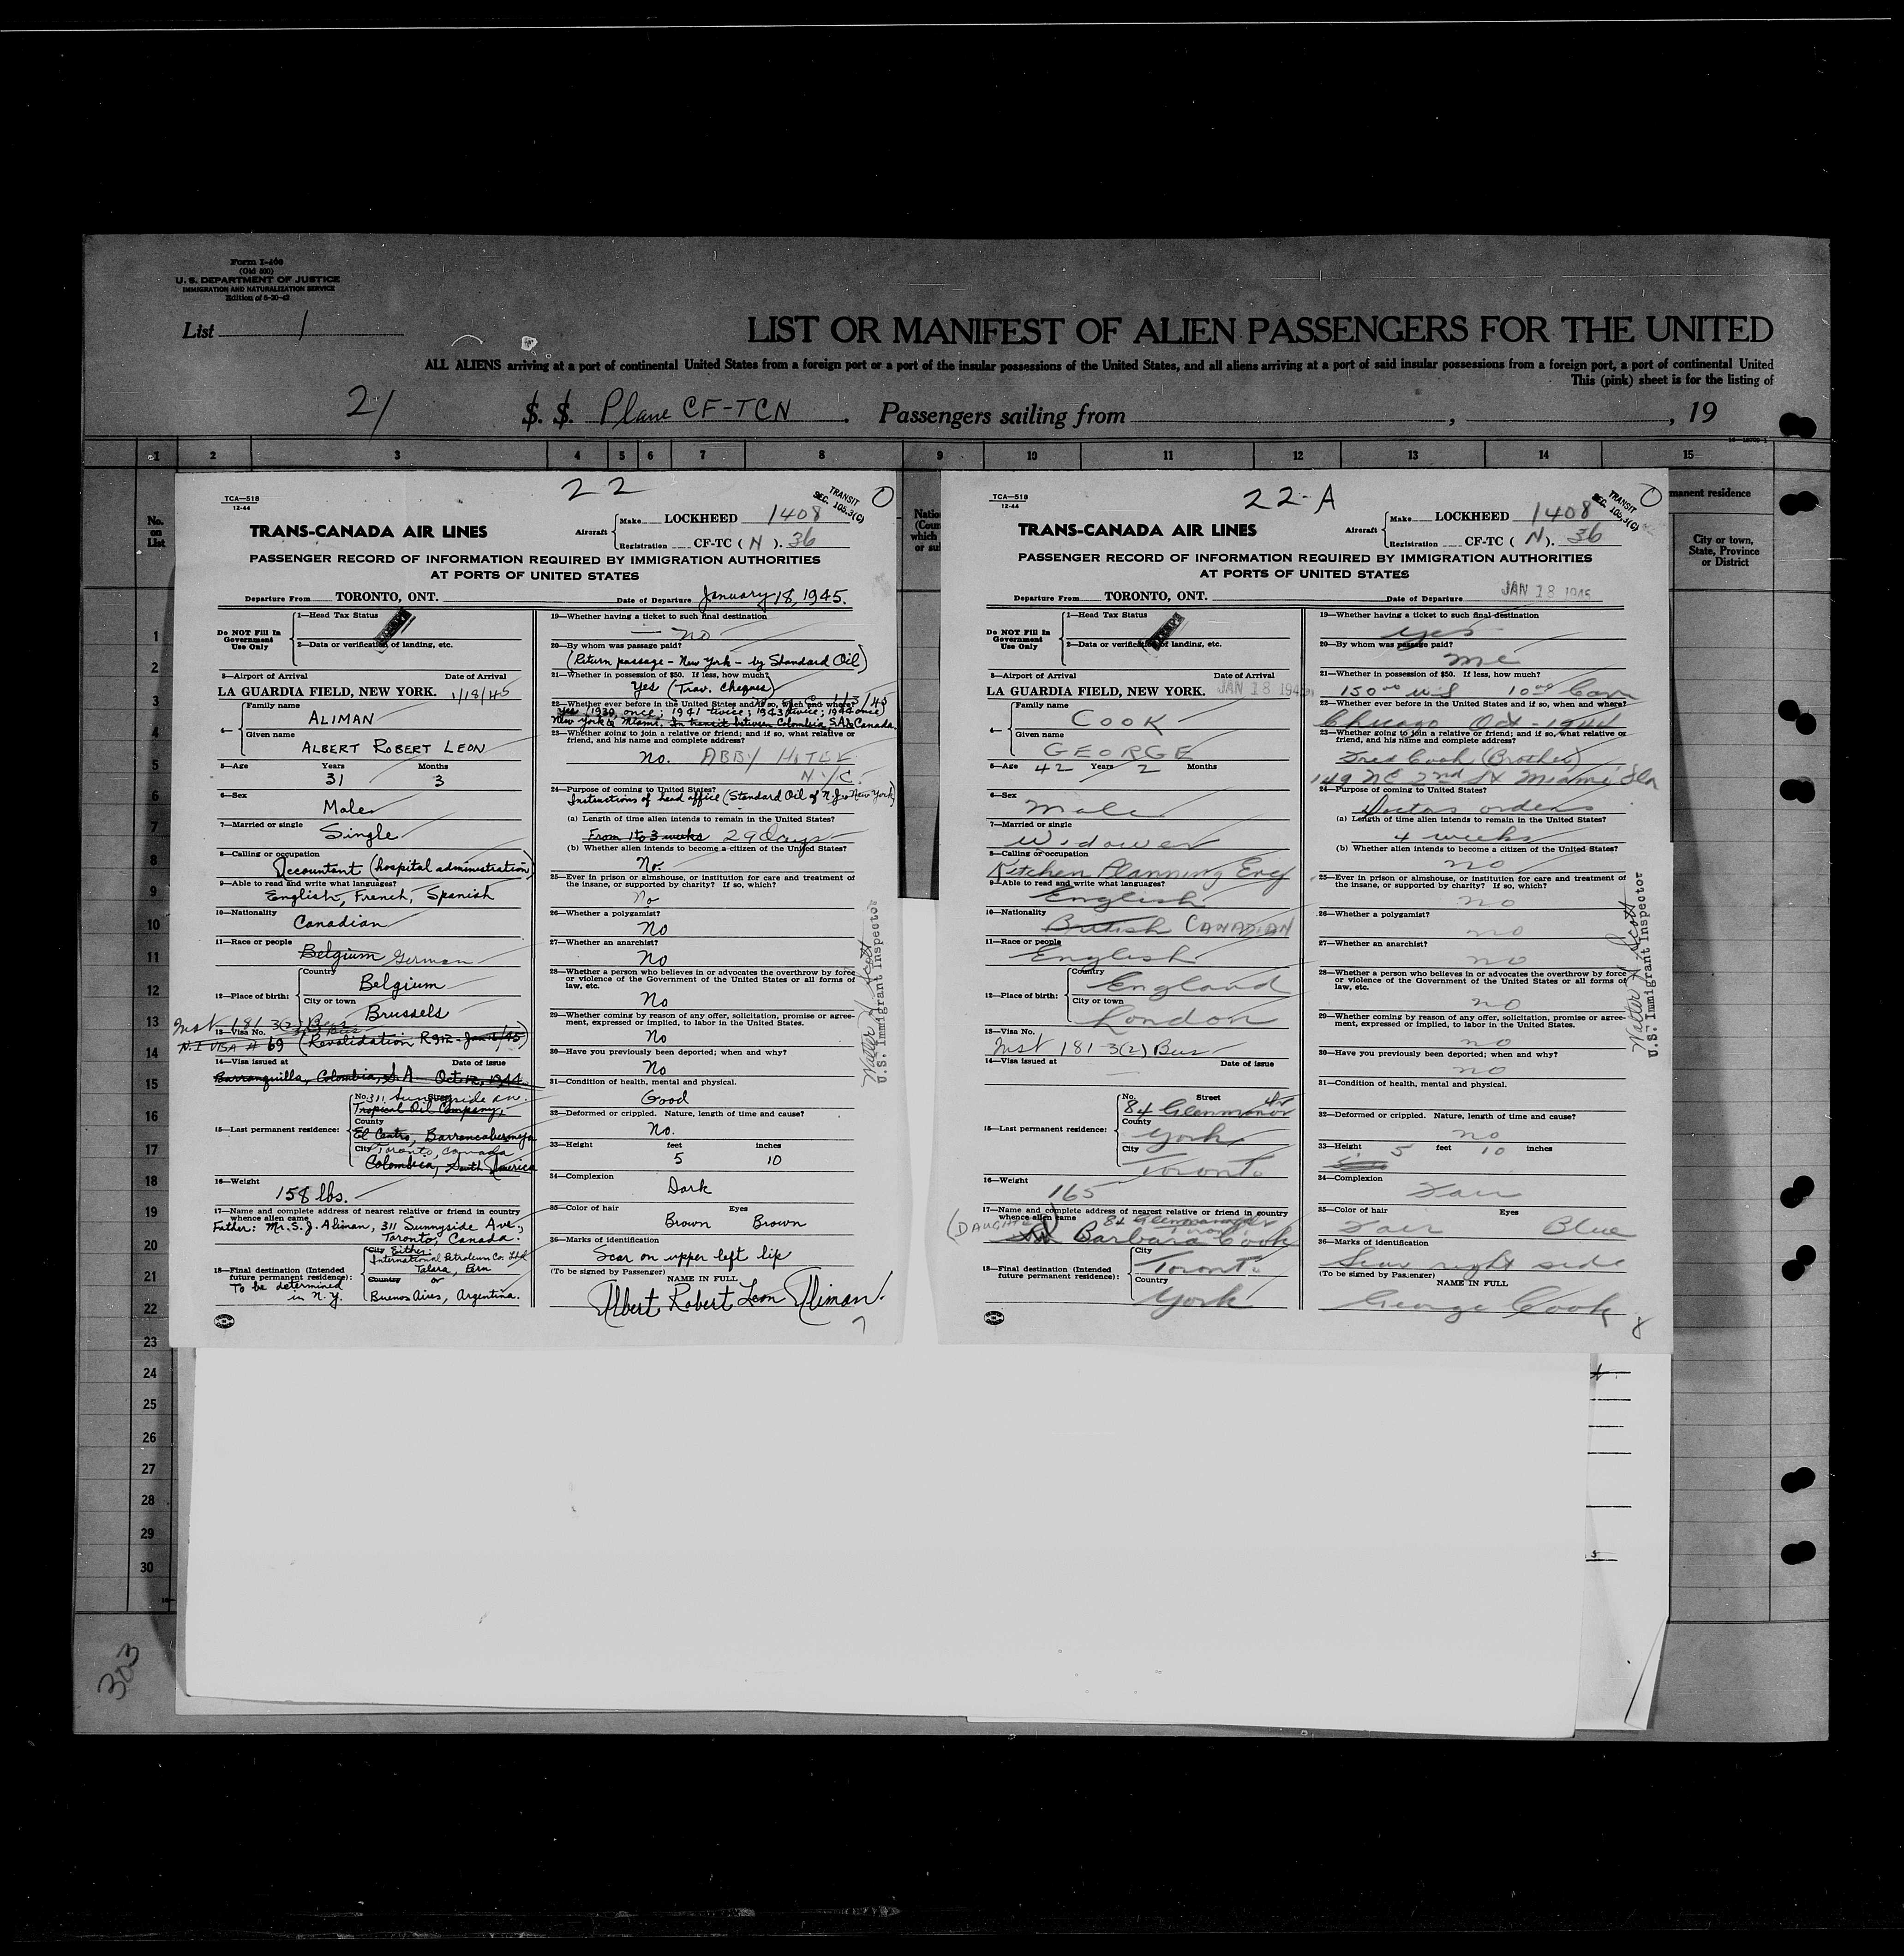 Form I-400
(Old 500)
U. S. DEPARTMENT OF JUSTICE
IMMIGRATION AND NATURALIZATION SERVICE
List 1
LIST OR MANIFEST OF ALIEN PASSENGERS FOR THE UNITED
ALL ALIENS arriving at a port of continental United States from a foreign port or a port of the insular possessions of the United States, and all aliens arriving at a port of said insular possessions from a foreign port, a port of continental United
This (pink) sheet is for the listing of
21 S. S. Plane CF-TCN Passengers sailing from , , 19
1 2 3 4 5 6 7 8 9 10 11 12 13 14 15
No. on List
manent residence
City or town, State, Province or District
22
TCA—518
12-44
TRANSIT
SEC. 105.3(C)
O
TRANS-CANADA AIR LINES
Aircraft Make LOCKHEED 1408
Registration CF-TC ( N ). 36
PASSENGER RECORD OF INFORMATION REQUIRED BY IMMIGRATION AUTHORITIES
AT PORTS OF UNITED STATES
Departure From TORONTO, ONT. Date of Departure January 18, 1945.
Do NOT Fill In Government Use Only
1—Head Tax Status
2—Data or verification of landing, etc.
3—Airport of Arrival Date of Arrival
LA GUARDIA FIELD, NEW YORK. 1/18/45
4— Family name
ALIMAN
Given name
ALBERT ROBERT LEON
5—Age Years Months
31 3
6—Sex
Male
7—Married or single
Single
8—Calling or occupation
Accountant (hospital administration)
9—Able to read and write what languages?
English, French, Spanish
10—Nationality
Canadian
11—Race or people
Belgium German
12—Place of birth: Country
Belgium
City or town
Brussels
Inst 181-3(2) Bus
13—Visa No.
N.I VISA # 69 (Revalidation
14—Visa issued at Date of issue
Barranquilla, Colombia, S.A. Oct 12, 1944
15—Last permanent residence: No. 311 Sunnyside av.
Tropical Oil Company,
County
El Centro, Barrancabermeja
City Toronto, Canada
Colombia, South America
16—Weight
158 lbs.
17—Name and complete address of nearest relative or friend in country whence alien came
Father: Mr. S. J. Aliman, 311 Sunnyside Ave.,
Toronto, Canada.
18—Final destination (Intended future permanent residence):
To be determined
in N.Y.
City Either:
International Petroleum Co. Ltd
Talara, Peru
Country or
Buenos Aires, Argentina.
19—Whether having a ticket to such final destination
— no
20—By whom was passage paid?
(Return passage - New York - by Standard Oil)
21—Whether in possession of $50. If less, how much?
Yes (Trav. cheques)
22—Whether ever before in the United States and if so, when and where?
1/3/45
Yes (1939, once; 1941 twice; 1943 twice; 1944 once)
New York & Miami. In transit between Colombia, S.A & Canada.
23—Whether going to join a relative or friend; and if so, what relative or friend, and his name and complete address?
No. ABBY HOTEL
N.Y.C.
24—Purpose of coming to United States?
Instructions of head office (Standard Oil of N.J. New York)
(a) Length of time alien intends to remain in the United States?
From 1 to 3 weeks 29 Days
(b) Whether alien intends to become a citizen of the United States?
No.
25—Ever in prison or almshouse, or institution for care and treatment of the insane, or supported by charity? If so, which?
No
26—Whether a polygamist?
No
27—Whether an anarchist?
No
28—Whether a person who believes in or advocates the overthrow by force or violence of the Government of the United States or all forms of law, etc.
No
29—Whether coming by reason of any offer, solicitation, promise or agreement, expressed or implied, to labor in the United States.
No
30—Have you previously been deported; when and why?
No
31—Condition of health, mental and physical.
Good
32—Deformed or crippled. Nature, length of time and cause?
No.
33—Height feet inches
5 10
34—Complexion
Dark
35—Color of hair Eyes
Brown Brown
36—Marks of identification
Scar on upper left lip
(To be signed by Passenger)
NAME IN FULL
Albert Robert Leon Aliman.
7
Walter H Scott
U.S. Immigrant Inspector
22-A
TCA—518
12-44
TRANSIT
SEC. 105.3(C)
O
TRANS-CANADA AIR LINES
Aircraft Make LOCKHEED 1408
Registration CF-TC ( N ). 36
PASSENGER RECORD OF INFORMATION REQUIRED BY IMMIGRATION AUTHORITIES
AT PORTS OF UNITED STATES
Departure From TORONTO, ONT. Date of Departure JAN 18 1945
Do NOT Fill In Government Use Only
1—Head Tax Status
2—Data or verification of landing, etc.
3—Airport of Arrival Date of Arrival
LA GUARDIA FIELD, NEW YORK. JAN 18 194
4— Family name
COOK
Given name
GEORGE
5—Age 42 Years 2 Months
6—Sex
Male
7—Married or single
Widower
8—Calling or occupation
Kitchen Planning Eng
9—Able to read and write what languages?
English
10—Nationality
British CANADIAN
11—Race or people
English
12—Place of birth: Country
England
City or town
London
13—Visa No.
Inst 181-3(2) Bus
14—Visa issued at Date of issue
15—Last permanent residence: No. Street
84 Glenmanor
County
York
City
Toronto
16—Weight
165
17—Name and complete address of nearest relative or friend in country whence alien came
(DAUGHTER) 84 Glenmanor
Toronto
Barbara Cook
18—Final destination (Intended future permanent residence):
City
Toronto
Country
York
19—Whether having a ticket to such final destination
yes
20—By whom was passage paid?
me
21—Whether in possession of $50. If less, how much?
150.00 U.S 10.00 Can
22—Whether ever before in the United States and if so, when and where?
Chicago Oct - 1944
23—Whether going to join a relative or friend; and if so, what relative or friend, and his name and complete address?
Fred Cook (Brother)
149 NE 2nd St Miami Fla
24—Purpose of coming to United States?
Doctors orders
(a) Length of time alien intends to remain in the United States?
4 weeks
(b) Whether alien intends to become a citizen of the United States?
no
25—Ever in prison or almshouse, or institution for care and treatment of the insane, or supported by charity? If so, which?
no
26—Whether a polygamist?
no
27—Whether an anarchist?
no
28—Whether a person who believes in or advocates the overthrow by force or violence of the Government of the United States or all forms of law, etc.
no
29—Whether coming by reason of any offer, solicitation, promise or agreement, expressed or implied, to labor in the United States.
no
30—Have you previously been deported; when and why?
no
31—Condition of health, mental and physical.
32—Deformed or crippled. Nature, length of time and cause?
no
33—Height 5 feet 10 inches
34—Complexion
Fair
35—Color of hair Eyes
Fair Blue
36—Marks of identification
Scar right side
(To be signed by Passenger)
NAME IN FULL
George Cook
8
Walter H Scott
U.S. Immigrant Inspector
1
2
3
4
5
6
7
8
9
10
11
12
13
14
15
16
17
18
19
20
21
22
23
24
25
26
27
28
29
30
303